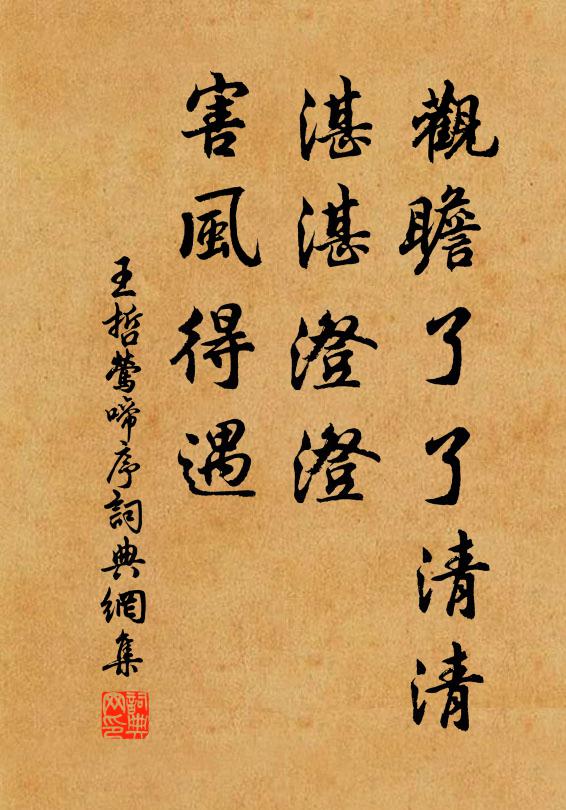 觀瞻了了清清
湛湛澄澄
害風得遇
王哲鶯啼序詞典網集
詞典網印